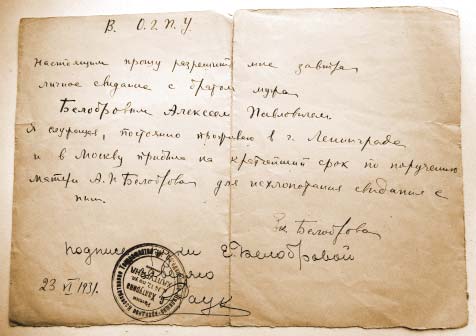 В О.Г.П.У
Настоящим прошу разрешить мне завтра
личное свидание с братом мужа
Белобровым Алексеем Павловичем
Я служащая, постоянно проживаю в г. Ленинграде
и в Москву прибыла на кратчайший срок по поручению
матери А. П. Белоброва для исхлопотания свидания с
ним.
Белоброва
подпись Е. Белобровой
23 VI 1931.